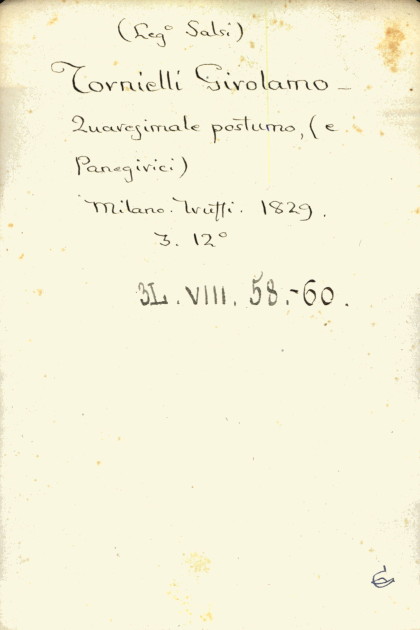 (Leg° Salsi)
Tornielli Girolamo –
Quaresimale postumo, (e
Panegirici)
Milano. Truffi. 1829.
3. 12°
3L. VIII. 58.-60.